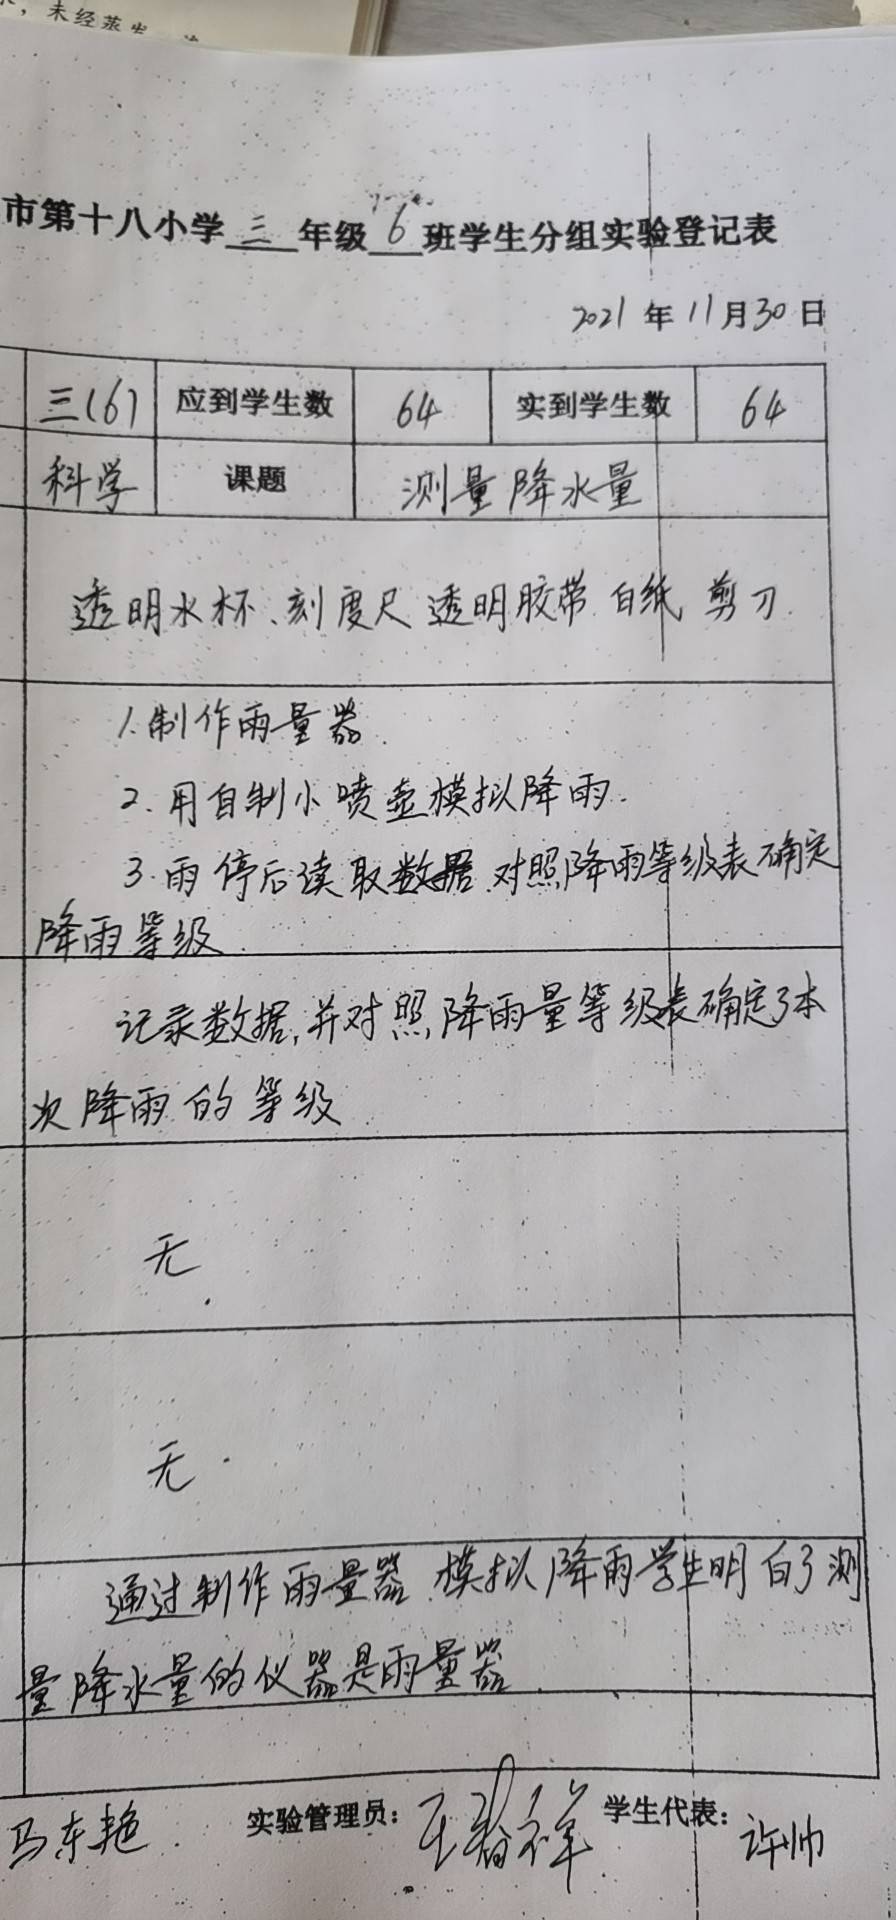 未经蒸发
市第十八小学三年级6班学生分组实验登记表
2021年11月30日
三(6) 应到学生数 64 实到学生数 64
科学 课题 测量降水量
透明水杯、刻度尺 透明胶带 白纸 剪刀
1.制作雨量器
2.用自制小喷壶模拟降雨.
3.雨停后读取数据 对照降雨等级表确定
降雨等级
记录数据,并对照降雨量等级表确定了本
次降雨的等级
无
无
通过制作雨量器 模拟降雨学生明白了测
量降水量的仪器是雨量器
马东艳 实验管理员: 学生代表: 许帅